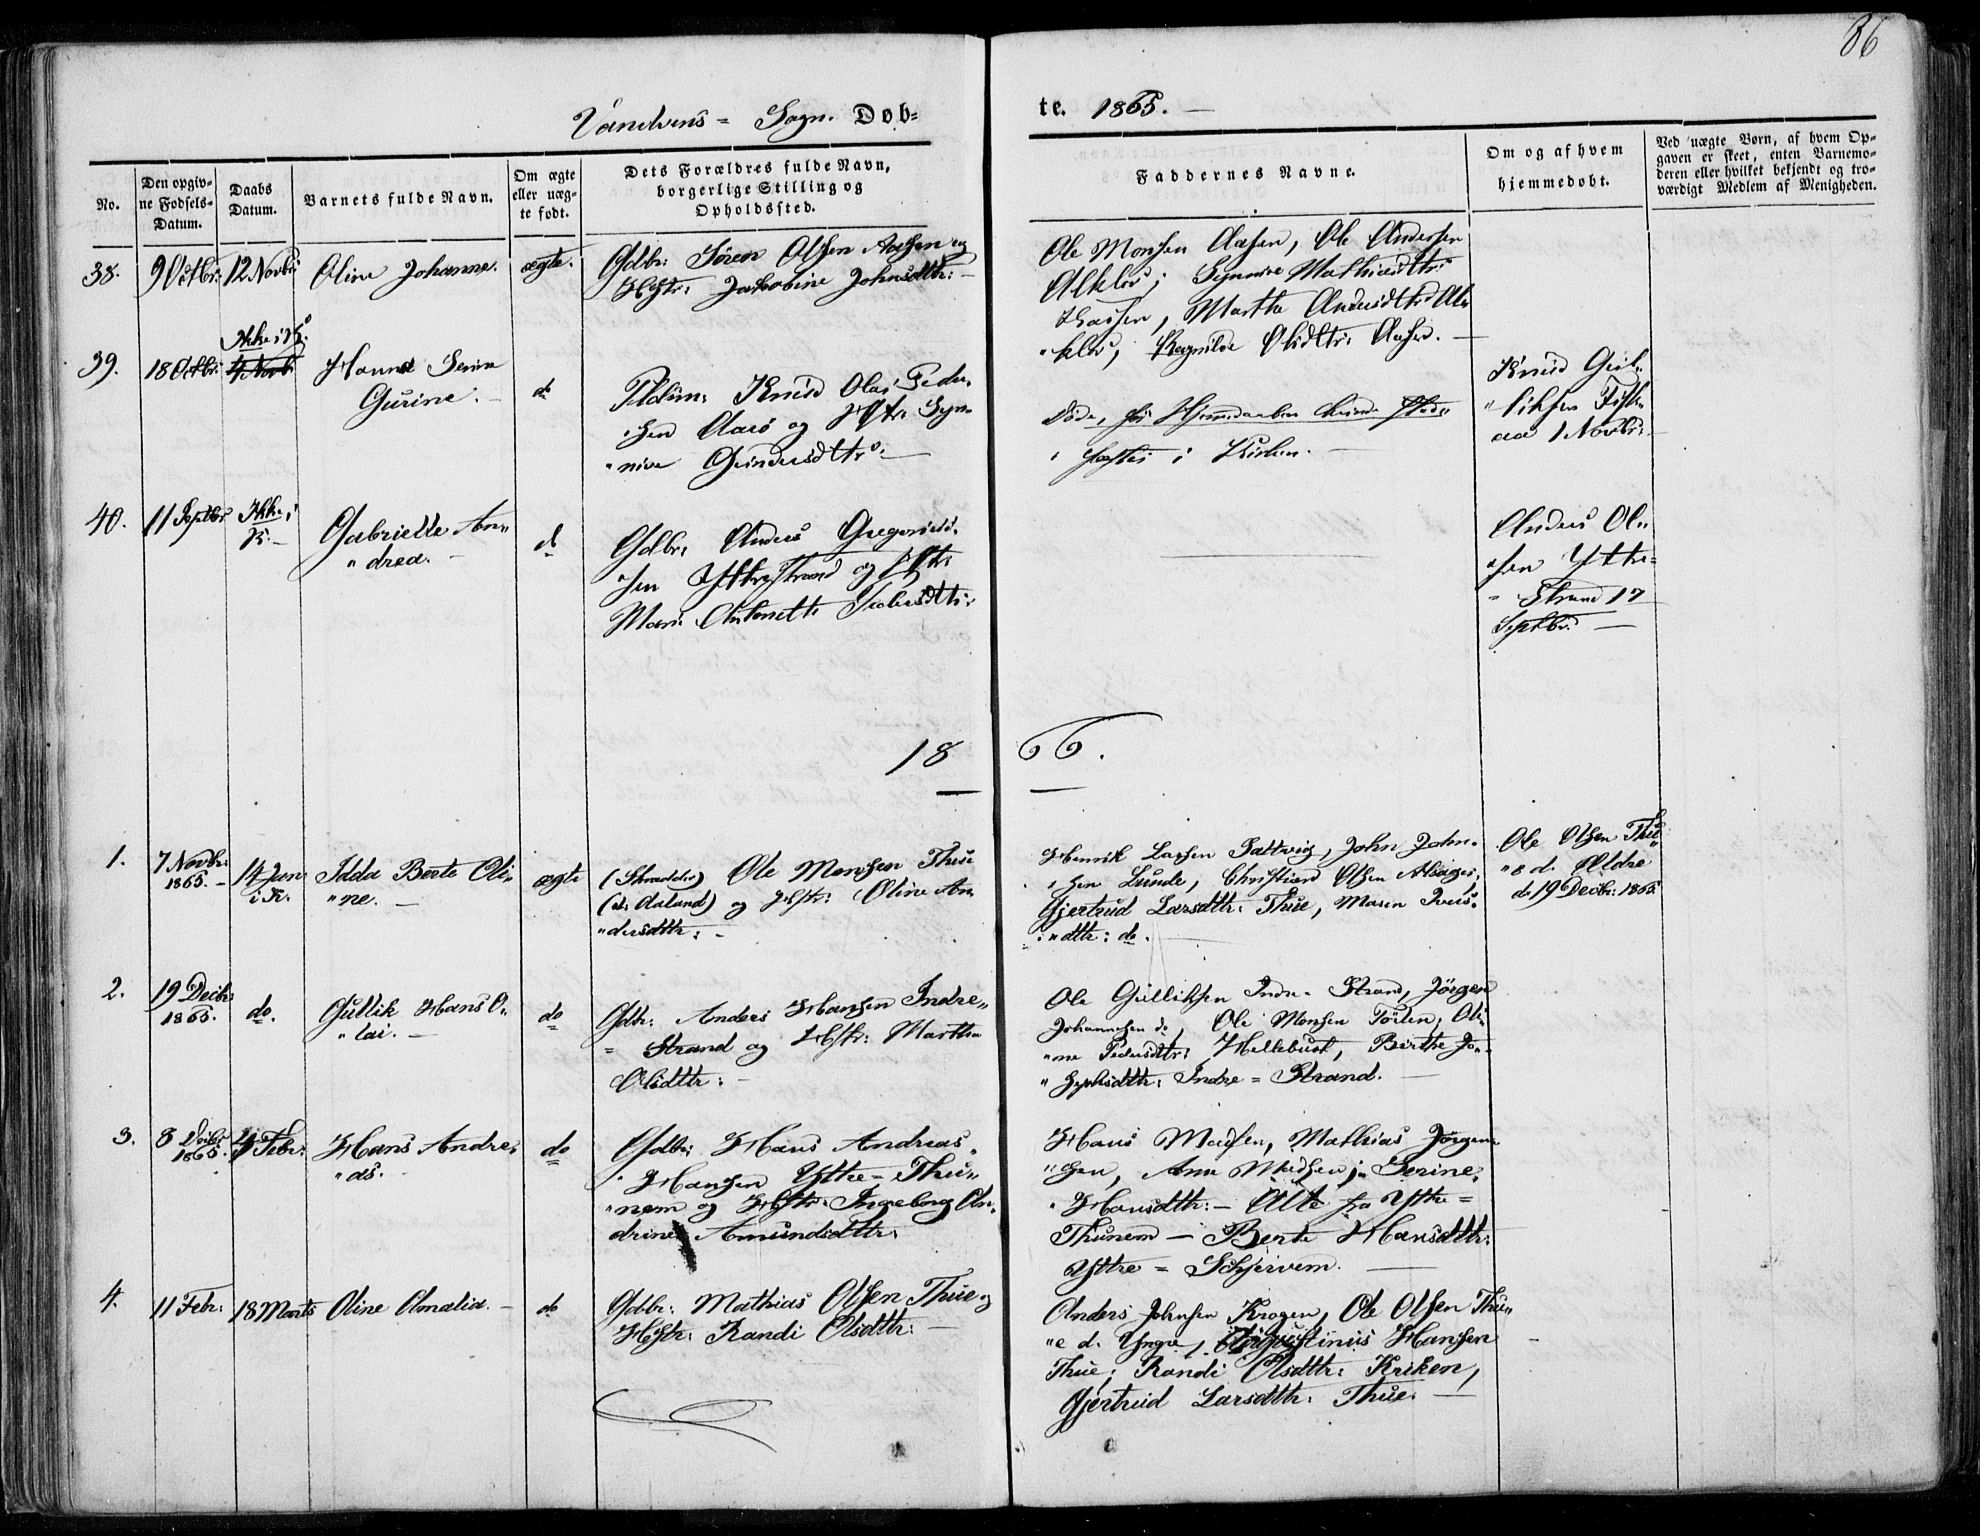 86
Vandvens = Sogn. Døb=
te. 1865. —
No.
Den opgiv-
ne Fødsels-
Datum.
Daabs
Datum.
Barnets fulde Navn.
Om ægte
eller uæg-
te født.
Dets Forældres fulde Navn,
borgerlige Stilling og
Opholdssted.
Faddernes Navne.
Om og af hvem
hjemmedøbt.
Ved uægte Børn, af hvem Op-
gaven er skeet, enten Barnemo-
deren eller hvilket bekjendt og tro-
værdigt Medlem af Menigheden.
38.
9 Octbr:
12 Novbr
Oline Johanne.
ægte.
Gdbr: Søren Olsen Aasen og
Hstr: Jakobine Johnsdttr: —
Ole Monsen Aasen, Ole Andersen
Mathiasdttr:
Marthe Andersdttr:
Ragnilde Olsdttr: Aasen. —
39.
18 Octbr:
Ikke i K.
4 Novb
Hanna Serine
Gurine. —
do
Knud Olai Peder
sen Aarø og Hstr: Syn-
"nive Gundersdttr: —
Døde, før Hjemmedaaben kunde
i Kirken. —
Knud Gul-
"liksen Fisk
aa 1 Novbr:
40.
11 Septbr
Ikke i
K. —
Gabrielle An-
"drea. —
do
Gdbr: Anders Gregorius-
"sen Ytrestrand og Hstr:
Mari Antonette Pedersdttr:
Anders Ol-
"sen Yttre=
= Strand 17
Septbr: —
18 66.
1.
7 Novbr:
1865. —
14 Jan
i K.
Idda Berte Oli-
"ne. —
ægte
(Skrædder) Ole Monsen Thue
(d: Aaland) og Hstr: Oline An-
"dersdttr: —
Henrik Larsen Sættvig, John John-
"sen Lunde, Christian Olsen
Gjertrud Larsdttr: Thue, Maren Iver-
"dttr: do.
Ole Olsen Thu
"e d. Ældre
d. 19 Decbr: 1865
2.
19 Decbr
1865.
do.
Gullik Hans O-
"lai. —
do
Gdb: Anders Hansen Indre-
= Strand og Hstr: Marthe
Olsdttr: —
Ole Gulliksen Indre = Strand, Jørgen
Johannesen do, Ole Monsen Oli-
"ne Pedersdttr: Hellebust, Birthe Jo-
"sephsdttr: Indre = Strand. —
3.
8 Decbr
1865.
4 Febr:
Hans Andre-
"as.
do
Gdbr: Hans Andreas
"Hansen Yttre = Thu-
"nem og Hstr: Ingeborg An-
drine Amundsdttr:
Hans Madsen, Mathias Jørgen-
"sen, Ann Madsen; Serine
"Hansdttr: — Alle fra Yttre =
Thunem — Berte Hansdttr:
Yttre = Schjervem. —
4.
11 Febr:
18 Marts
Oline Amalia. —
do
Gdbr: Mathias Olsen Thue og
Hstr: Randi Olsdttr: —
Anders Johnsen Krogen, Ole Olsen Thu-
"e d. Yngre, Augustinus Hansen
Thue; Randi Olsdttr: Kriken,
Gjertrud Larsdttr: Thue. —